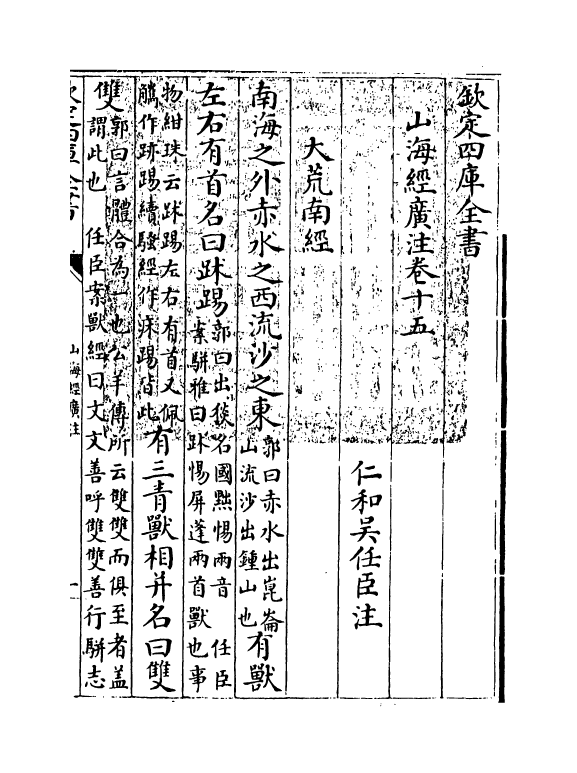 欽定四庫全書
山海經廣注卷十五
仁和吳任臣注
大荒南經
南海之外赤水之西流沙之東郭曰赤水出崑崙山流沙出鍾山也有獸
左右有首名曰跊踢郭曰出㺄名國黜惕兩音 任臣案駢雅曰跊惕屏蓬兩首獸也事
物紺珠云跊踢左右有首又佩觿作跡踢續騷經作床踢皆此有三青獸相并名曰雙
雙郭曰言體合為一也公羊傳所云雙雙而俱至者盖謂此也 任臣案獸經曰文文善呼雙雙善行駢志
欽定四庫全書
山海經廣注
一